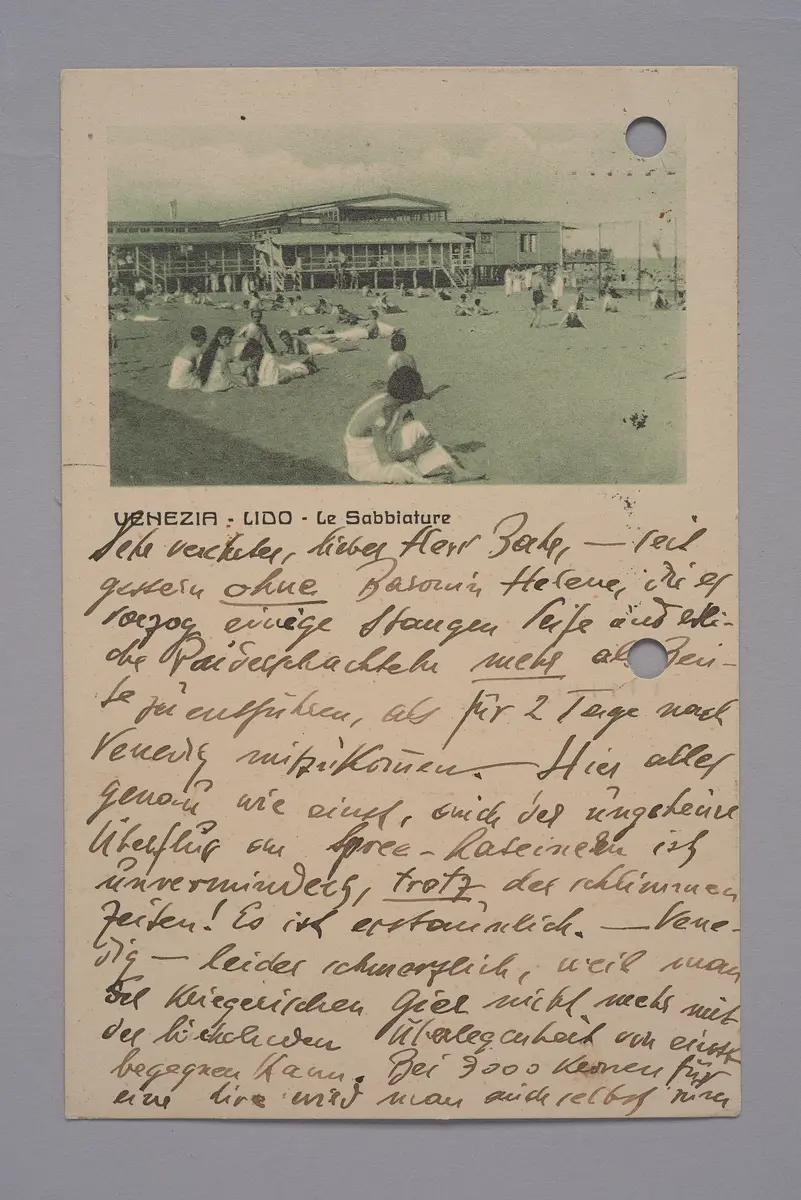 VENEZIA - LIDO - Le Sabbiature
Sehr verehrter, lieber Herr — seit
gestern ohne Baronin Helene, die es
vorzog einige Stangen Seife und etli-
che Puderschachteln mehr als Beu-
te zu entführen, als für 2 Tage nach
Venedig mitzukommen. — Hier alles
genau wie einst, auch der ungeheure
Überfluß an Spree-
ist
unvermindert, trotz der schlimmen
Zeiten! Es ist erstaunlich. — Vene-
dig — leider schmerzlich, weil man
der Kriegerischen Gier nicht mehr mit
der Überlegenheit von einst
begegnen kann. Bei Kronen für
eine Lire wird man auch selbst zum